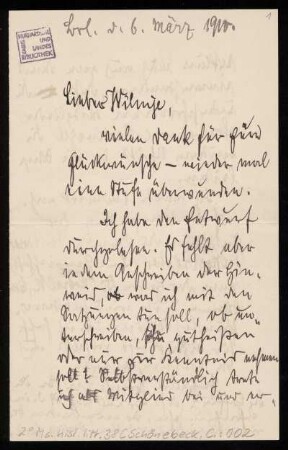 Brl. d. 6. März 1910.
1
MURHARDSCHE
UND
LANDES
BIBLIOTHEK
Lieber Wilmje,
vielen Dank für Eure
Glückwünsche – wieder mal
eine Stufe überwunden.
Ich habe den Entwurf
durchgelesen. Es fehlt aber
in dem Anschreiben der Hin-
weis, was ich mit den
Satzungen tun soll, ob un-
terschreiben, gutheißen
oder nur zur Kenntnis nehmen
soll? Selbstverständlich trete
ich als Mitglied bei und er-
2° Ms. hist. litt. 38 [Schönebeck, C.: 002